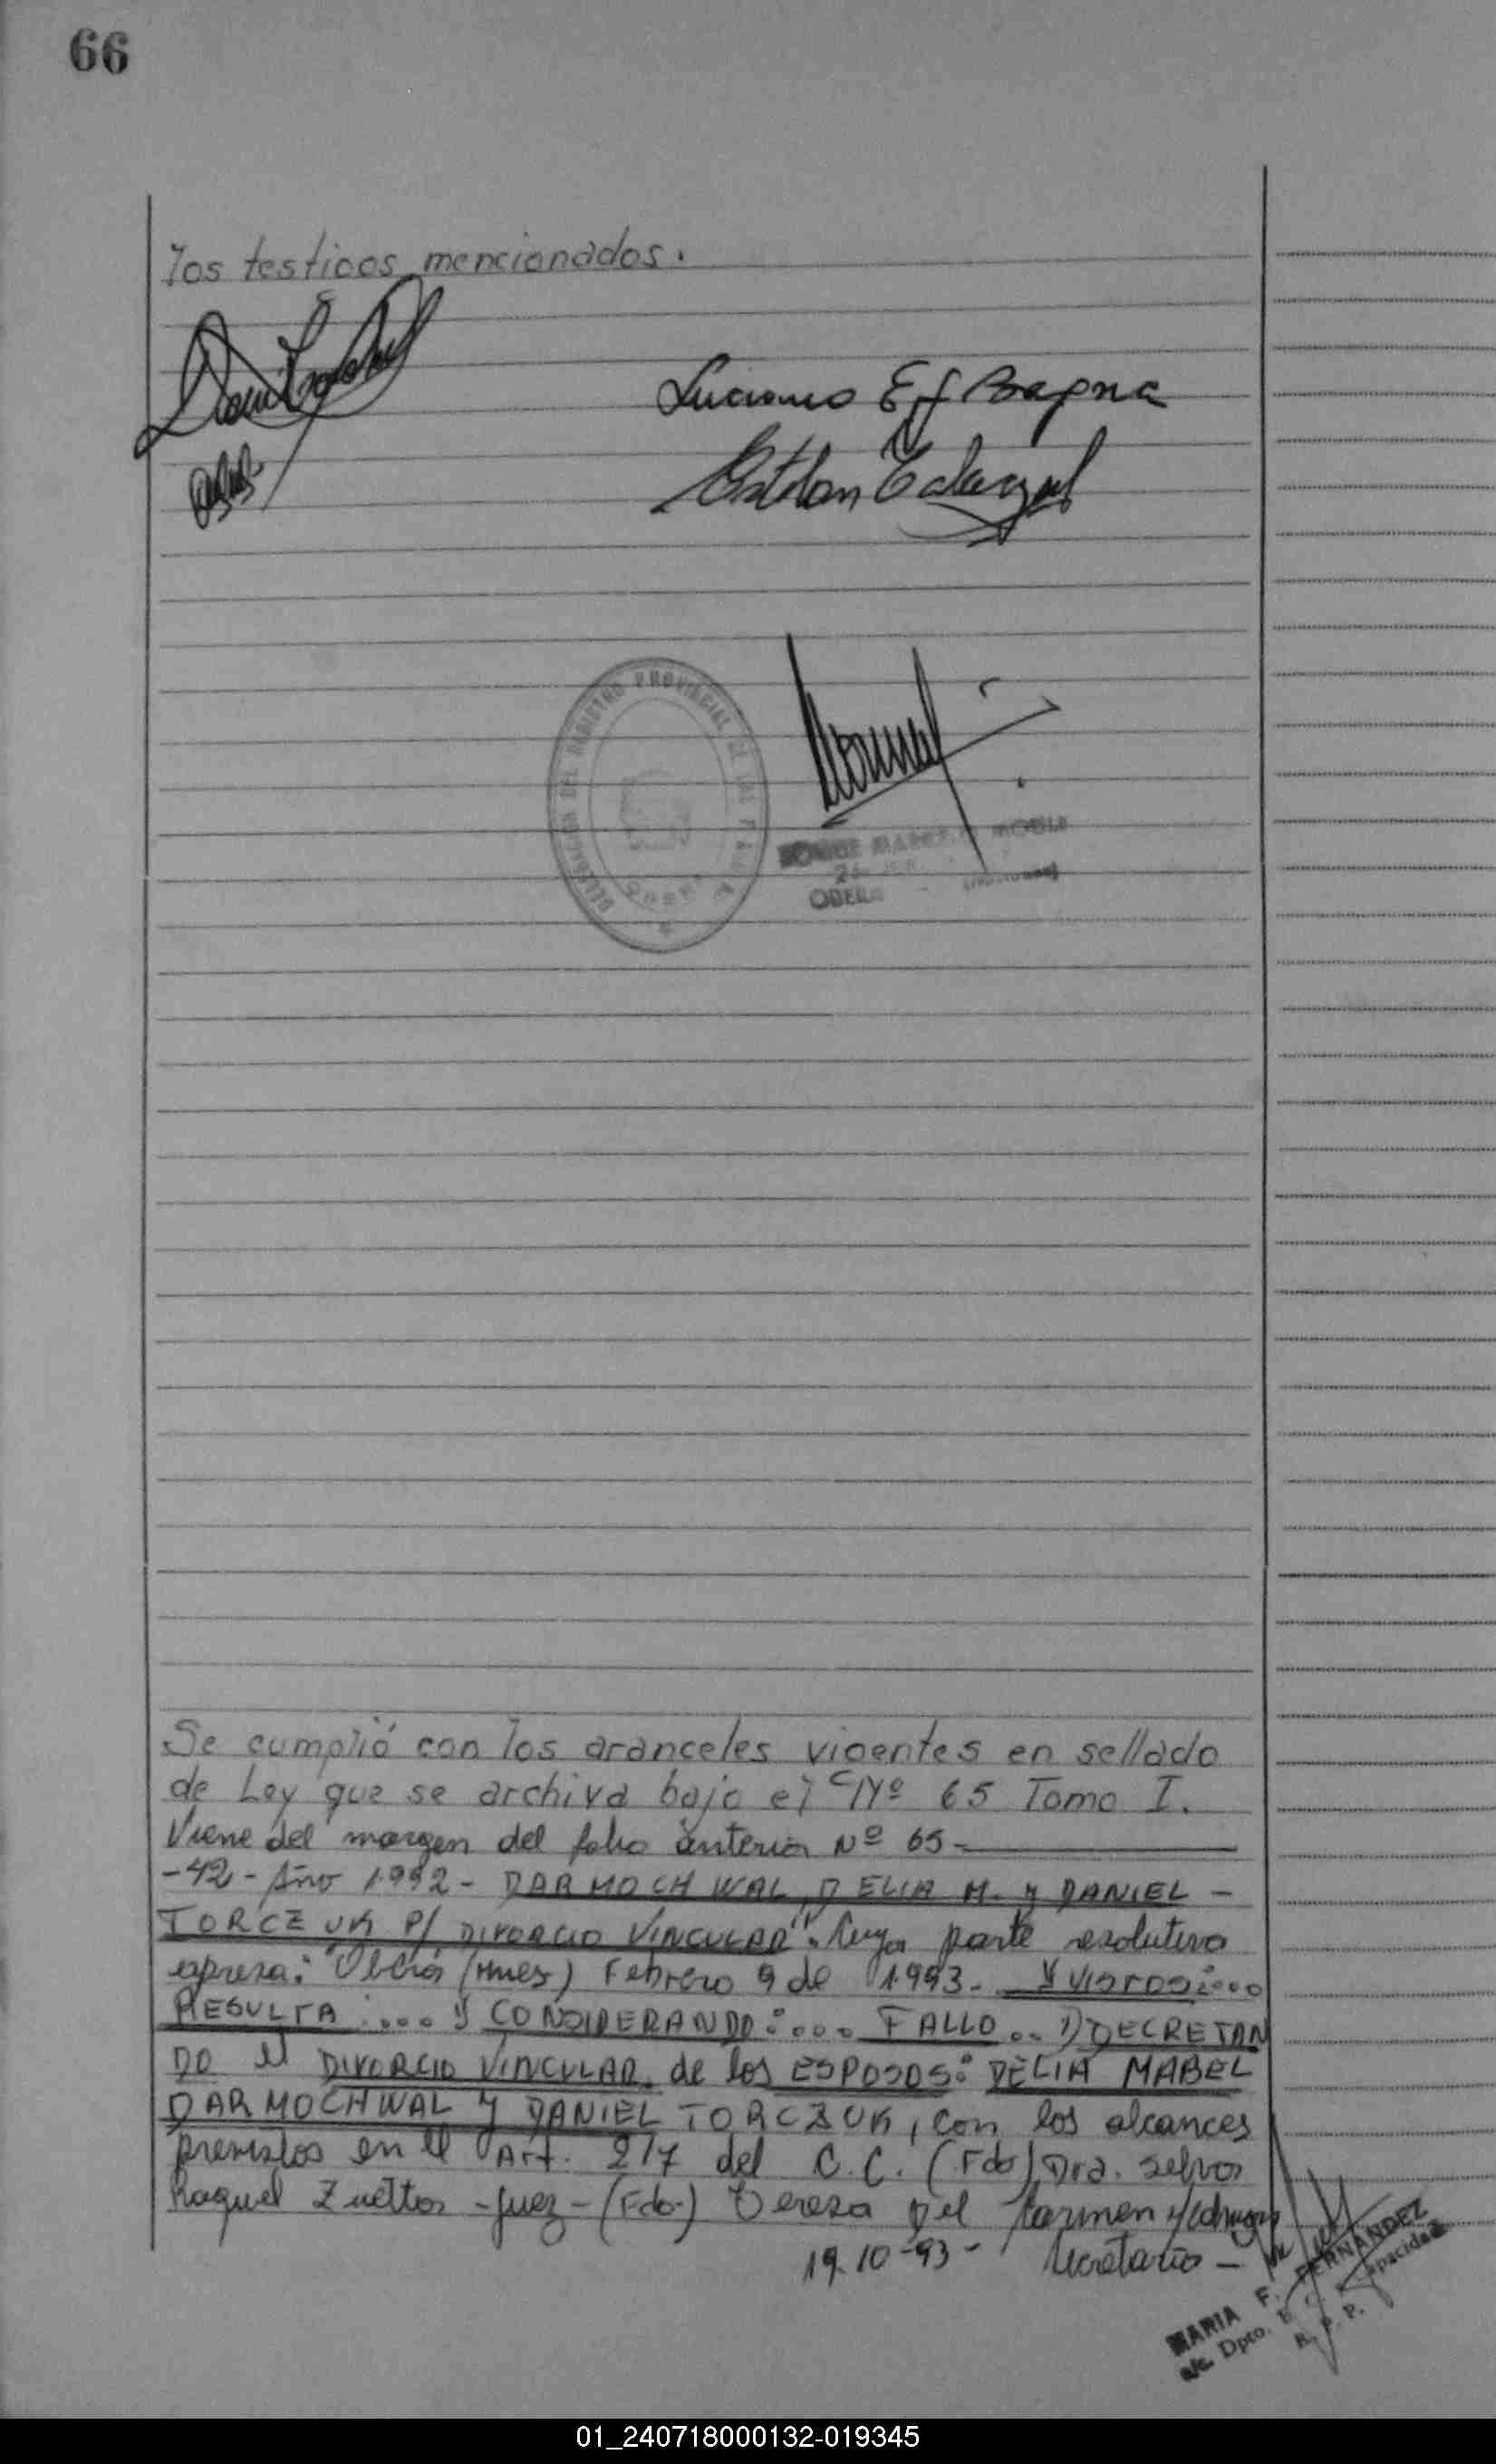 66
los testigos mencionados.
Luciano
Esteban
DELEGACION DEL REGISTRO PROVINCIAL DE LAS PERSONAS
OBERA
OBERA
Se cumplió con los aranceles vigentes en sellado
de Ley que se archiva bajo el Nº 65 Tomo I.
Viene del margen del folio anterior Nº 65-
-42- Año 1992- DARMOCHWAL, DELIA M. y DANIEL -
TORCZUK P/ DIVORCIO VINCULAR". Cuya parte resolutiva
expresa: "Oberá (Mnes) Febrero 9 de 1993.- Y VISTOS:...
RESULTA:.... y CONSIDERANDO:.... FALLO.. 1) DECRETAN
DO el DIVORCIO VINCULAR de los ESPOSOS: DELIA MABEL
DARMOCHWAL y DANIEL TORCZUK, con los alcances
previstos en el Art. 217 del C.C. (Fdo) Dra. Selva
Raquel Zuetto -Juez- (Fdo.) Teresa Del Carmen
19-10-93- Secretaria -
MARIA F. FERNANDEZ
a/c. Dpto. Capacidad
R. P. P.
01_240718000132-019345